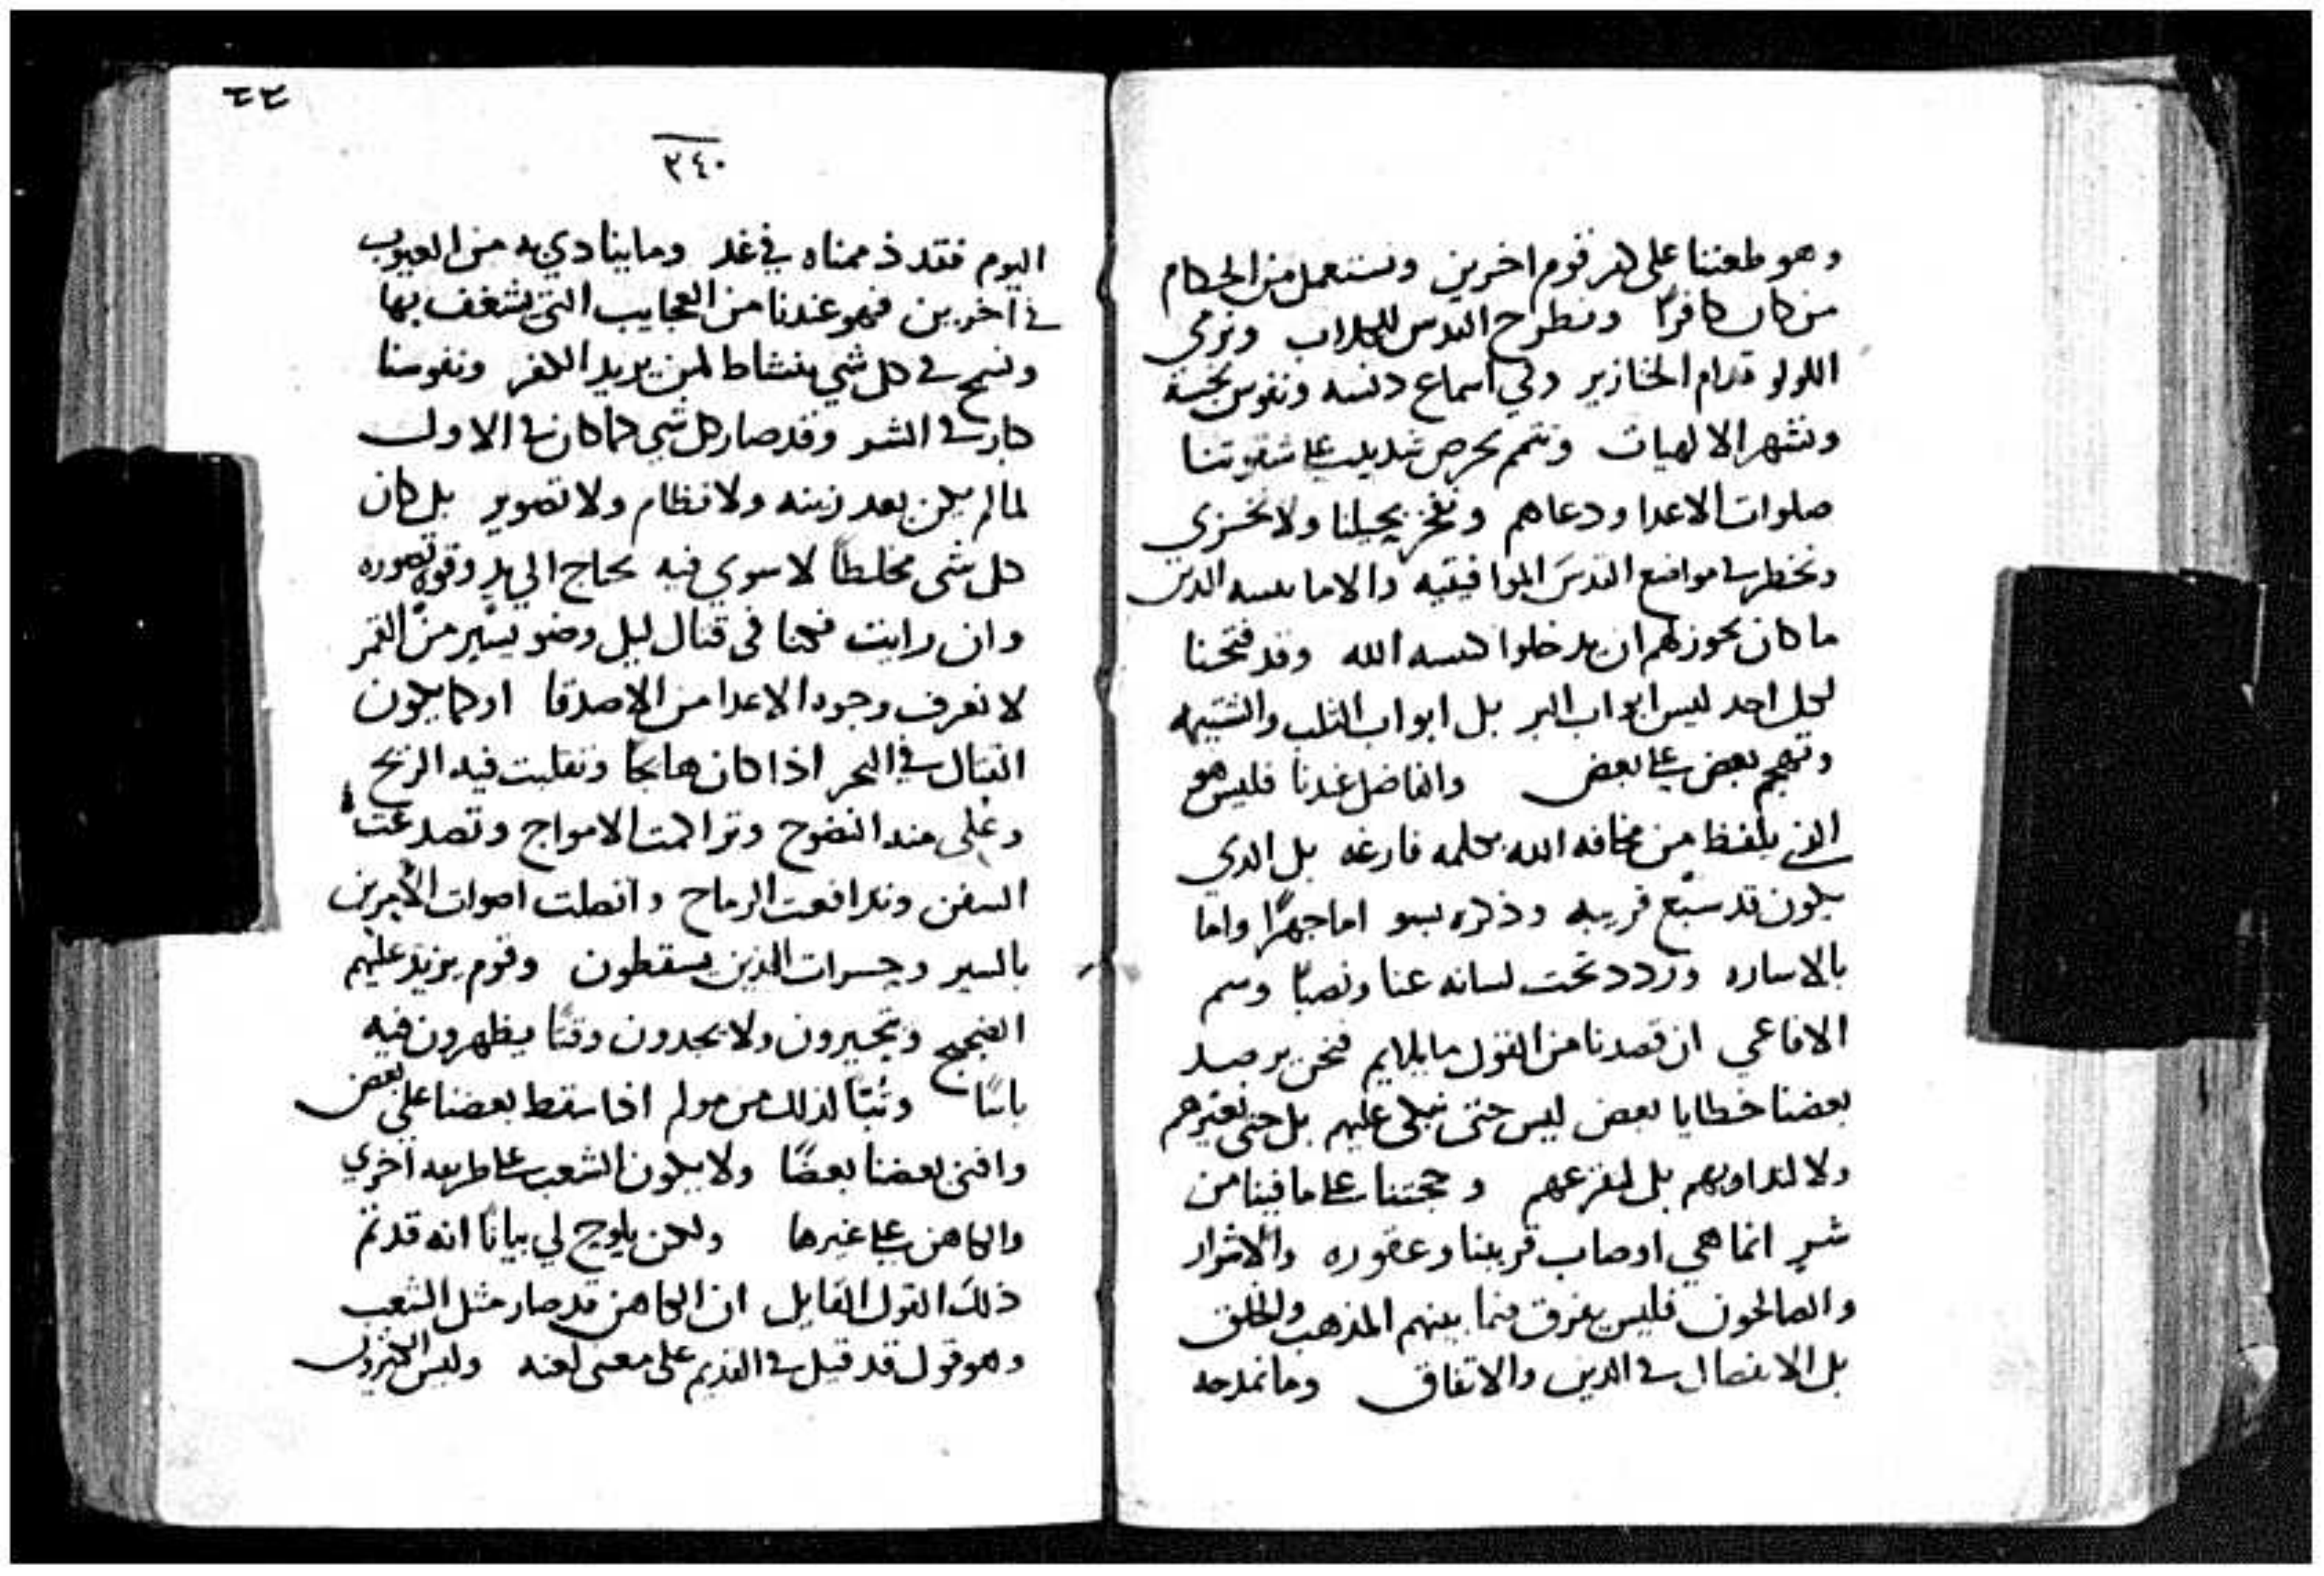 وهو طعننا على كفر قوم اخرين ونستعمل من الحكام
من كان كافرًا ونطرح القدس للكلاب ونرمي
اللولو قدام الخنازير وفي اسماع دنسه ونفوس نجسة
ونشهر الالهيات ونتمم بحرص شديد على شقوتنا
صلوات الاعدا ودعاهم ونفخر بحيلنا ولا نخزي
ونخطر في مواضع القدس الموافيقيه والامانيسه الذين
ما كان يجوز لهم ان يدخلوا كنيسه الله وقد فتحنا
لكل احد ليس ابواب البر بل ابواب الثلب والشتيمه
وتهجم بعض على بعض والفاضل عندنا فليس هو
الذي يلفظ من مخافه الله بكلمه فارغه بل الذي
يكون قد سبّع قريبه وذكره بسو اما جهرًا واما
بالاساره وردد تحت لسانه عنا ونصبًا وسم
الافاعي ان قصدنا من القول ما يلايم فنحن يرصد
بعضنا خطايا بعض ليس حتى نبكي عليهم بل حتى نعيرهم
ولا لنداويهم بل لنقرعهم وحجتنا على ما فينا من
شر انما هي اوصاب قريبنا وعقوره والاشرار
والصالحون فليس يفرق فيما بينهم المذهب والخلق
بل الانفصال في الدين والاتفاق وما نمدحه
٢٤٠
اليوم فقد ذممناه في غد وما ينادي به من العيوب
في اخرين فهو عندنا من العجايب التي نشغف بها
ونسمح في كل شي بنشاط لمن يريد الكفر ونفوسنا
كبار في الشر وقد صار كل شي كما كان في الاول
لما لم يكن بعد زينه ولا نظام ولا تصوير بل كان
كل شي مخلطًا لا سوي فيه يحتاج الي يد وقوه تصوره
وان رايت فكنا في قتال ليل وضو يسير من القمر
لا نعرف وجوه الاعدا من الاصدقا او كما يكون
القتال في البحر اذا كان هايجًا وتقلبت فيه الريح
وغلى منه النضوح وتراكمت الامواج وتصدعت
السفن وتدافعت الرماح واتصلت اصوات الامرين
بالسير وحسرات الذين يسقطون وقوم يزيد عليهم
الضجيج ويتحيرون ولا يجدون وقتًا يظهرون فيه
باسًا وتبًا لذلك من مولم اذا سقط بعضنا على بعض
وافنى بعضنا بعضًا ولا يكون الشعب على طريقه اخري
والكاهن على غيرها ولكن يلوح لي بيانًا انه قد تم
ذلك القول القايل ان الكاهن قد صار مثل الشعب
وهو قول قد قيل في القديم على معنى لعنه وليس الكثيرون